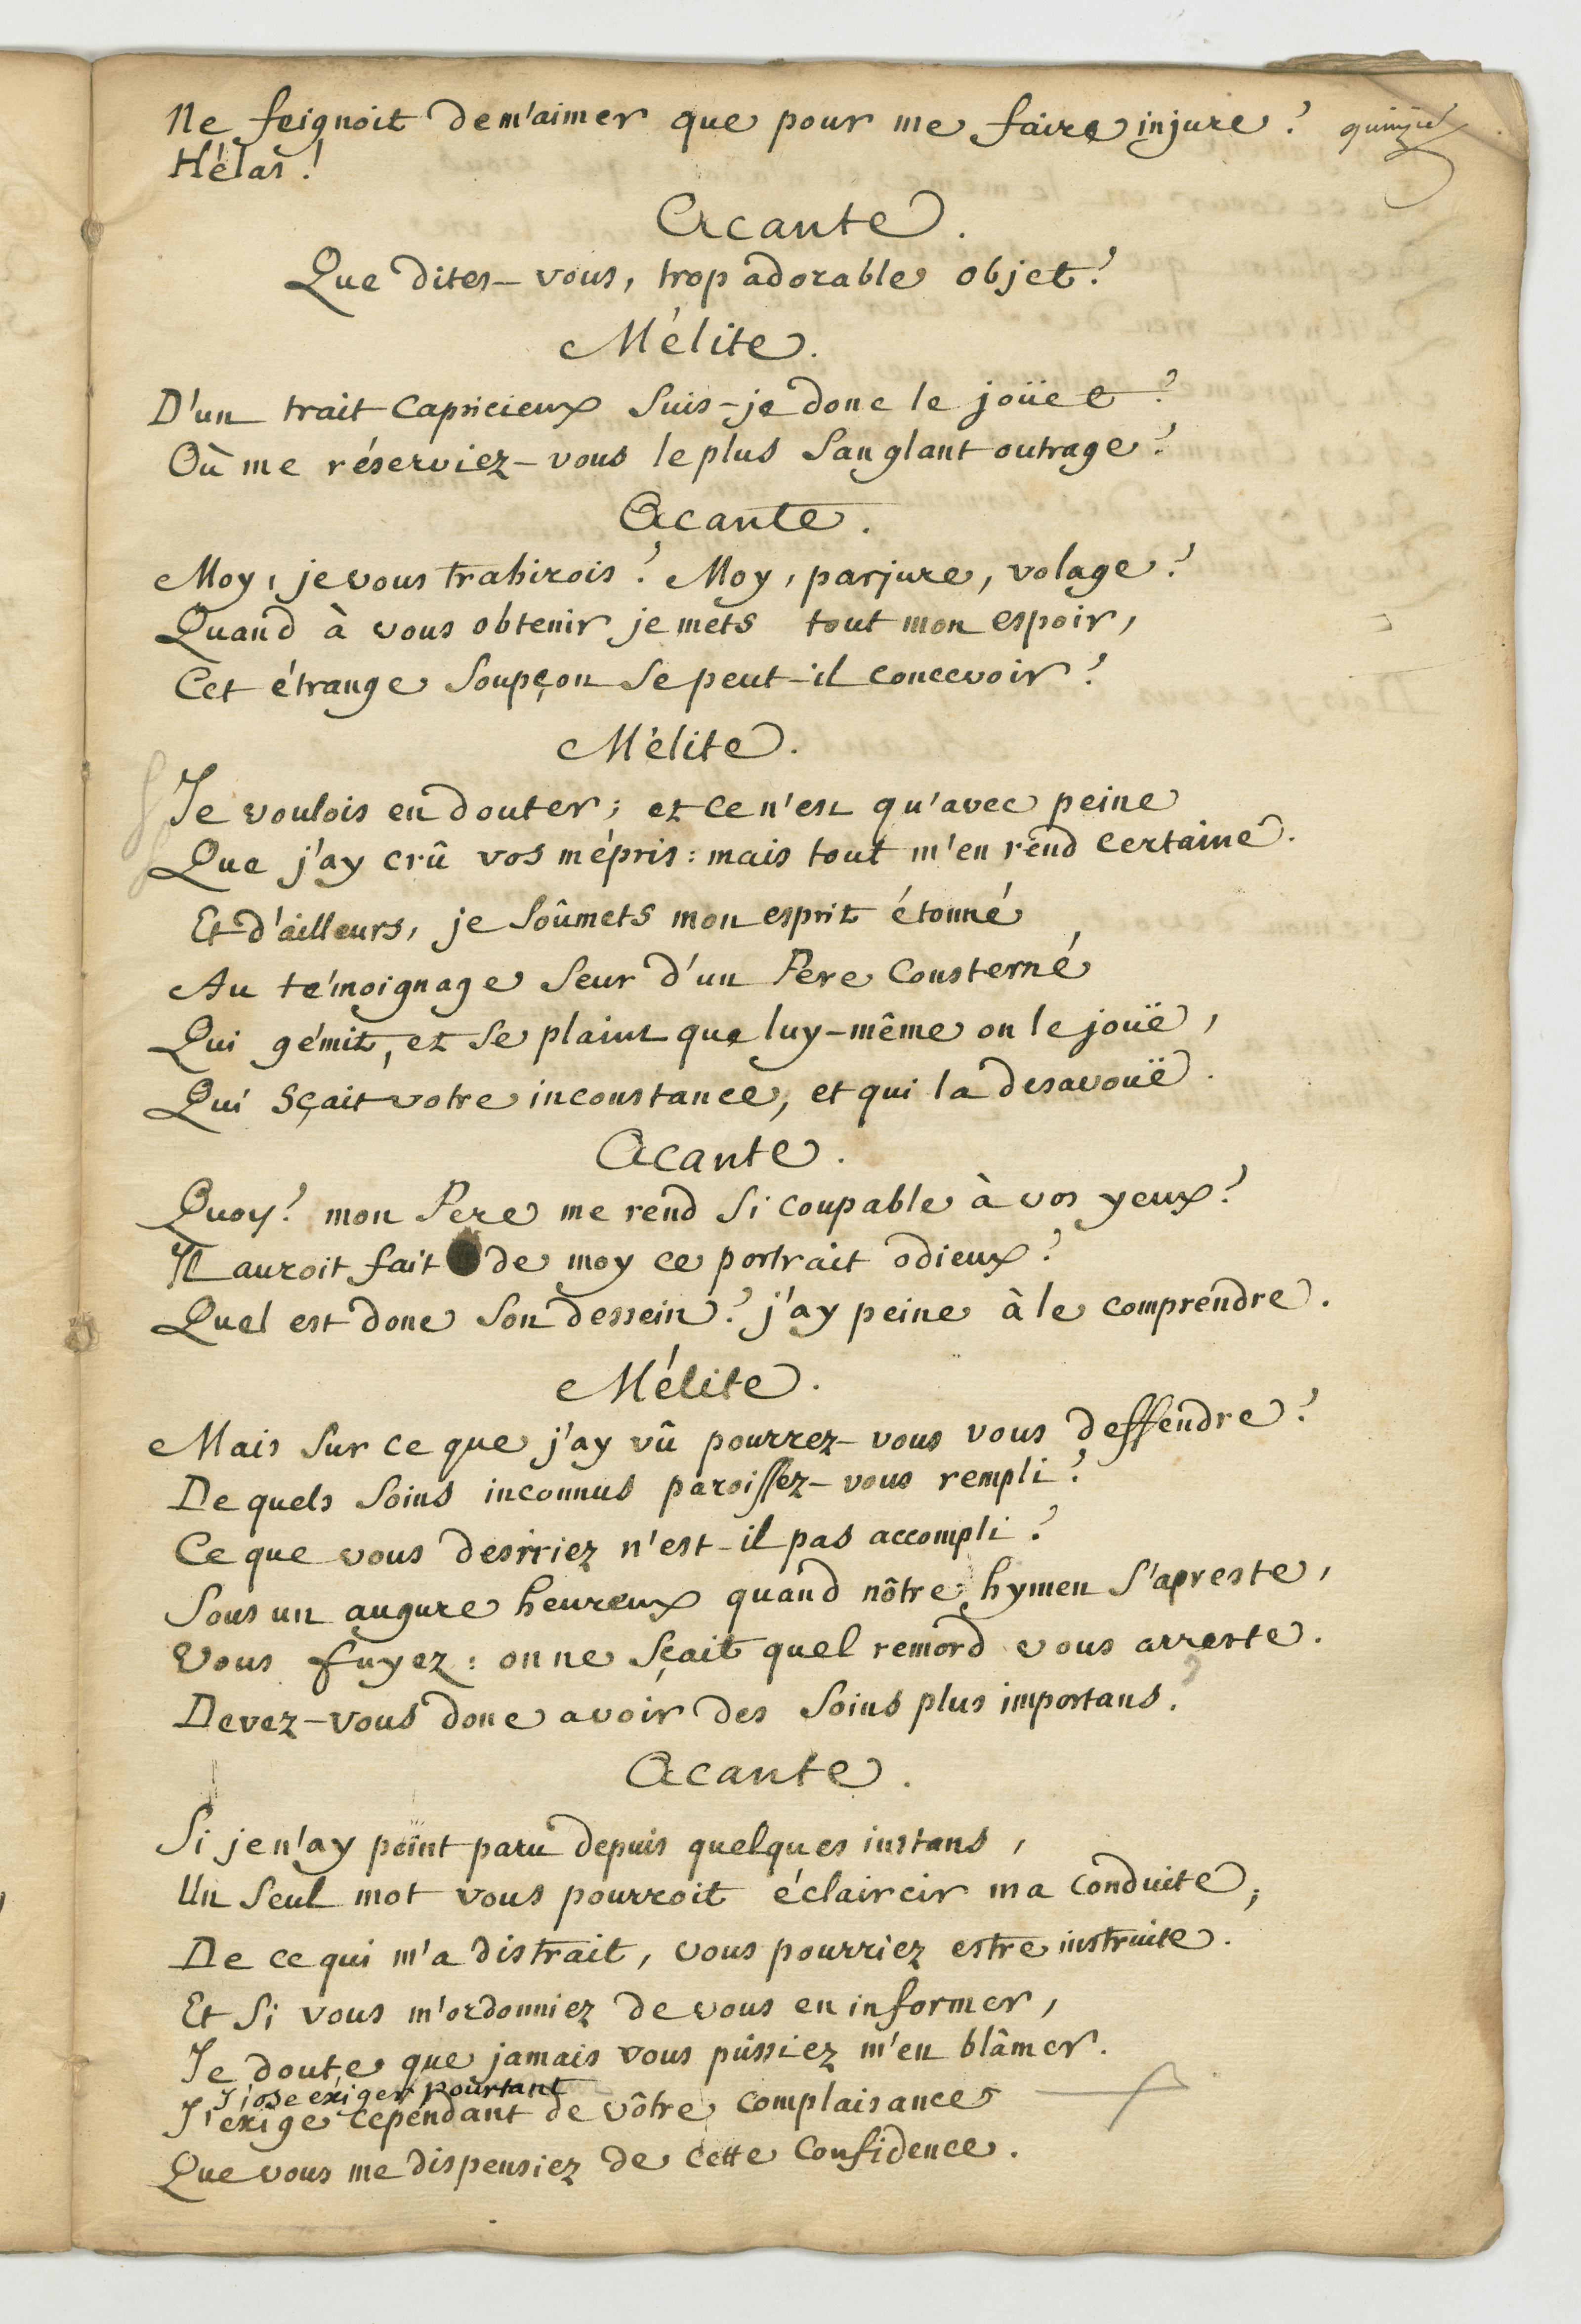 Ne feignoit de m'aimer que pour me faire injure?
Hélas!
Acante.
Que dites-vous, trop adorable objet?
Mélite.
D'un trait capricieux suis-je donc le joüet?
Où me réserviez-vous le plus sanglant outrage?
Acante.
Moy, je vous trahirois? Moy, parjure, volage?
Quand à vous obtenir je mets tout mon espoir,
Cet étrange soupçon se peut-il concevoir?
Mélite.
Je voulois en douter; et ce n'est qu'avec peine
Que j'ay crû vos mépris: mais tout m'en rend certaine.
Et d'ailleurs, je soûmets mon esprit étonné
Au témoignage seur d'un Pere consterné,
Qui gémit, et se plaint que luy-même on le joüe,
Qui sçait votre inconstance, et qui la desavoüe.
Acante.
Quoy? mon Pere me rend si coupable à vos yeux?
Il auroit fait de moy ce portrait odieux?
Quel est donc son dessein? j'ay peine à le comprendre.
Mélite.
Mais sur ce que j'ay vû pourrez-vous vous deffendre?
De quels soins inconnus paroissez-vous rempli?
Ce que vous desiriez n'est-il pas accompli?
Sous un augure heureux quand nôtre hymen s'apreste,
Vous fuyez: on ne sçait quel remord vous arreste.
Devez-vous donc avoir des soins plus importans?
Acante.
Si je n'ay point paru depuis quelques instans,
Un seul mot vous pourroit éclaircir ma conduite;
De ce qui m'a distrait, vous pourriez estre instruite.
Et si vous m'ordonniez de vous en informer,
Je doute que jamais vous pûssiez m'en blâmer.
J'ose exiger pourtant
J'exige cependant de vôtre complaisance
Que vous me dispensiez de cette confidence.